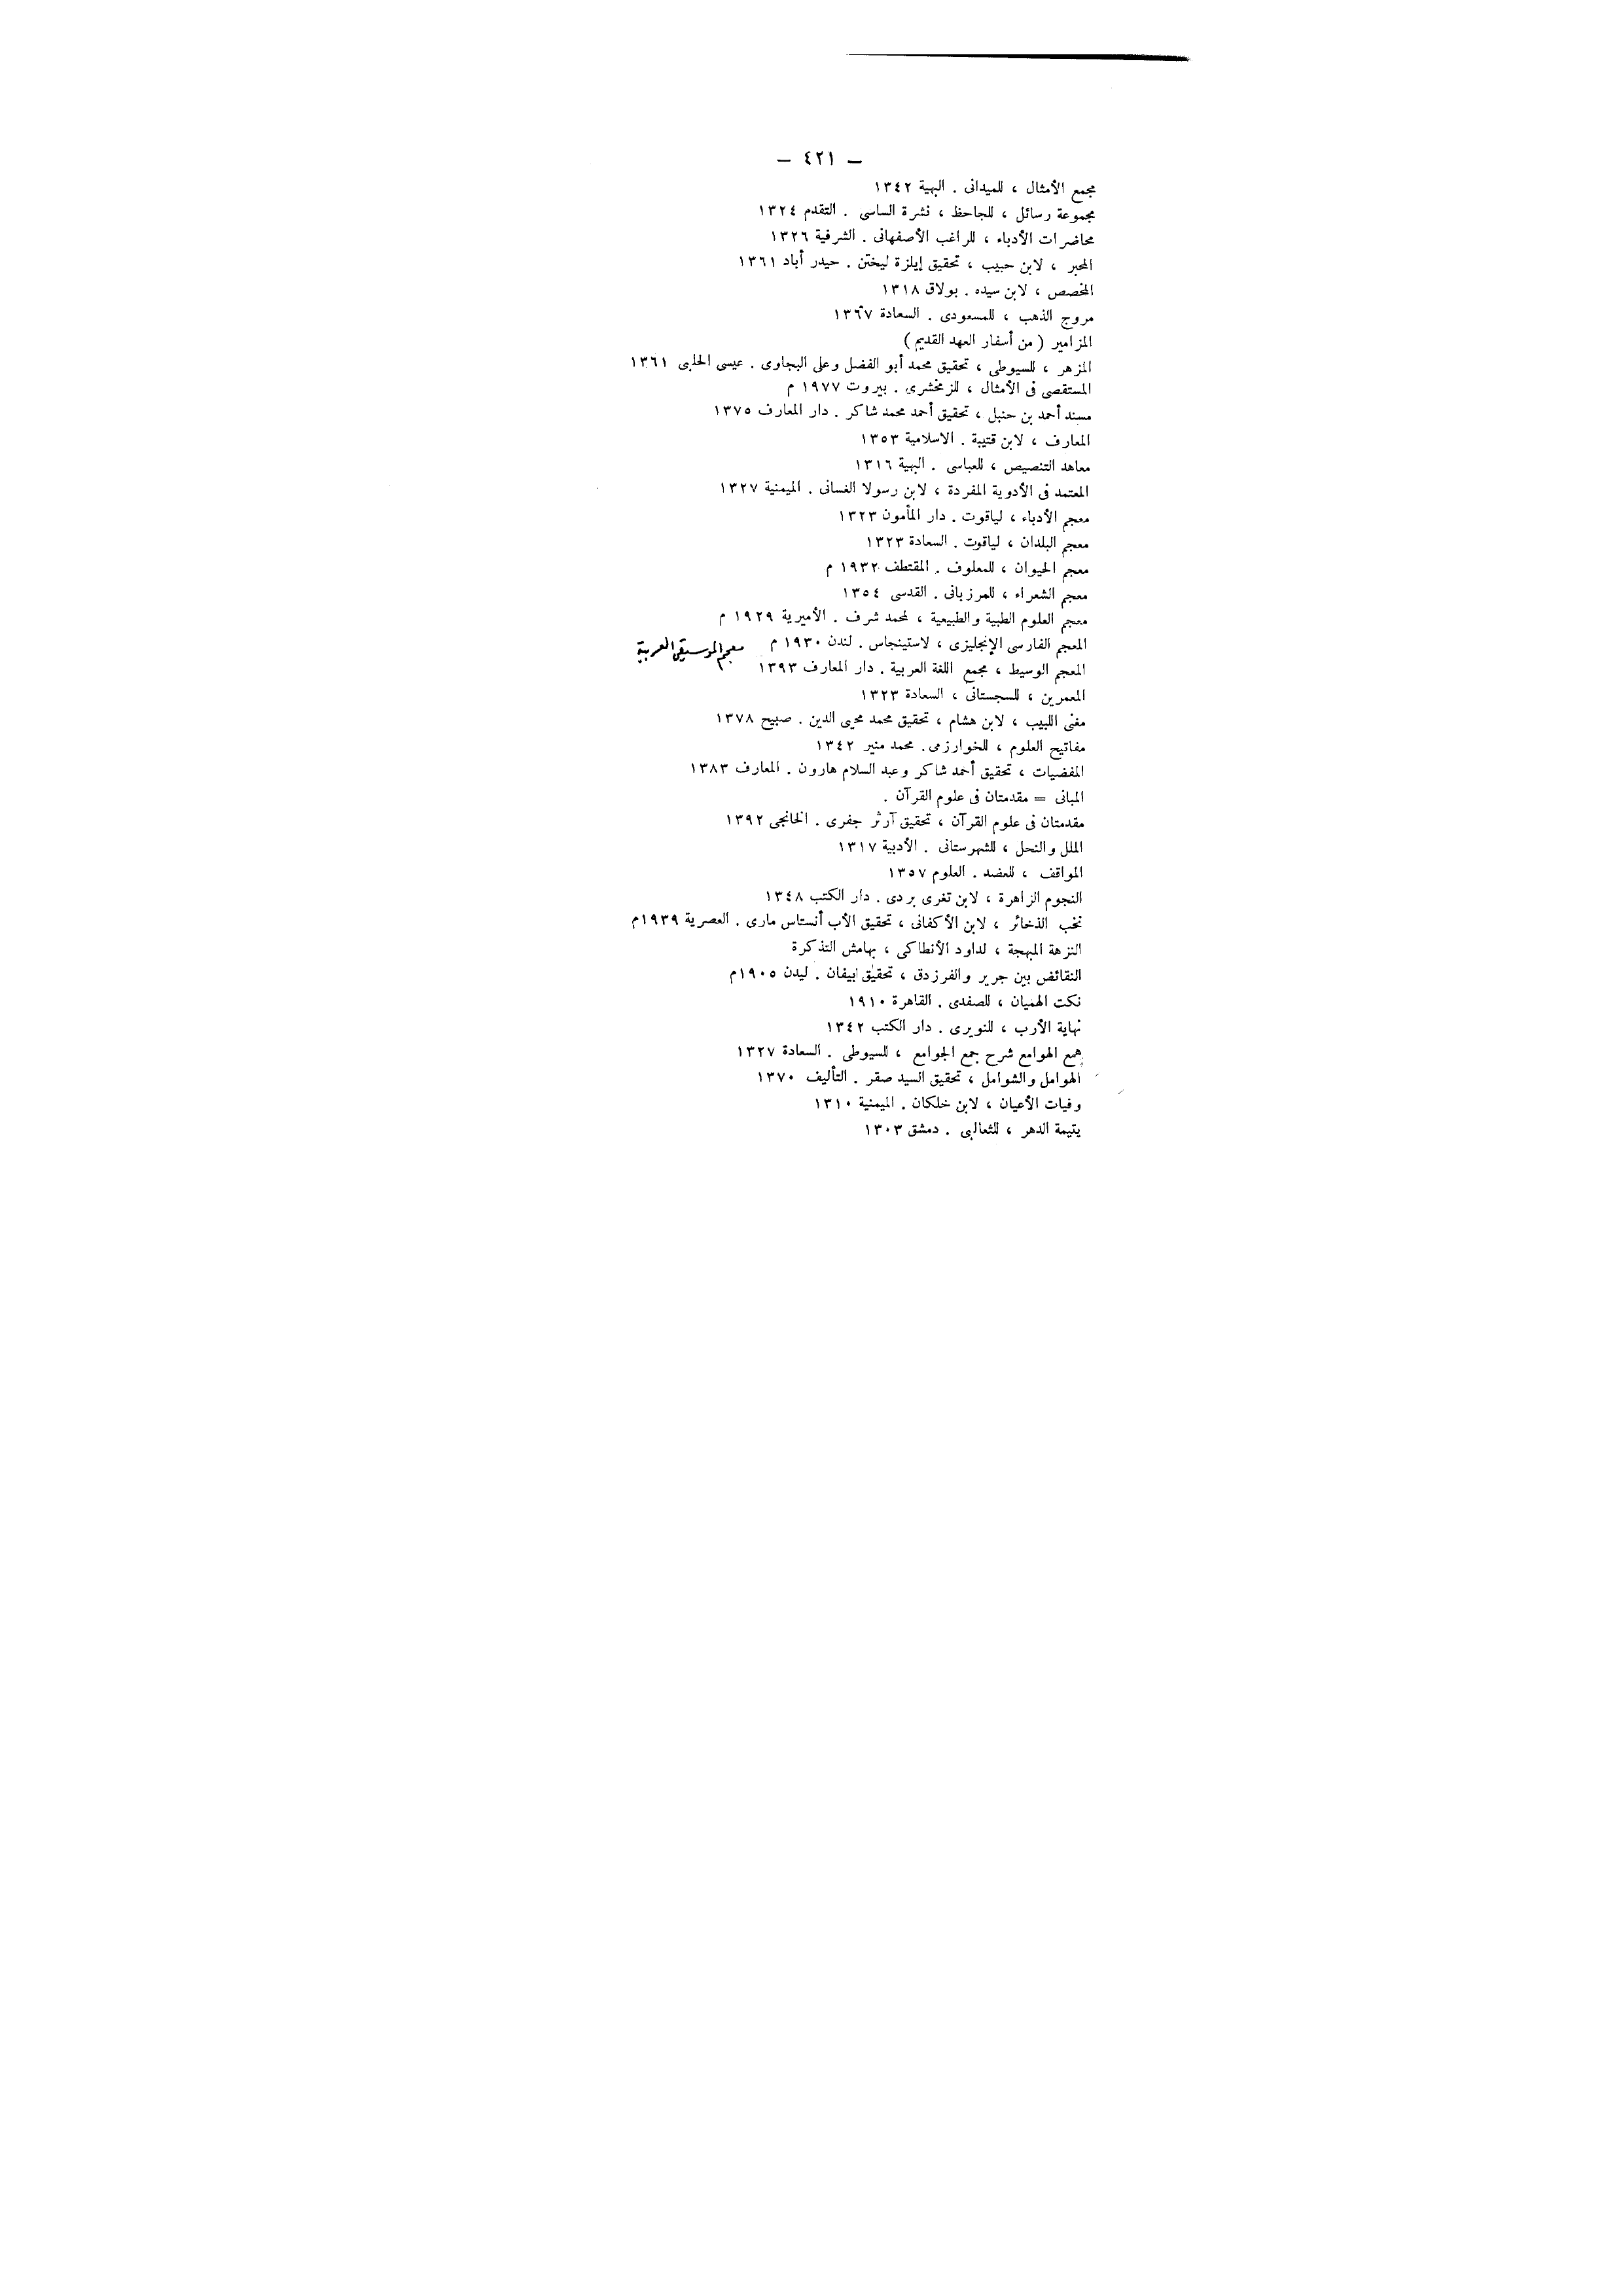 — ٤٢١ —
مجمع الأمثال ، للميدانى . البهية ١٣٤٢
مجموعة رسائل ، للجاحظ ، نشرة الساسى . التقدم ١٣٢٤
محاضرات الأدباء ، للراغب الأصفهانى . الشرفية ١٣٢٦
المحبر ، لابن حبيب ، تحقيق إيلزة ليختن . حيدر أباد ١٣٦١
المخصص ، لابن سيده . بولاق ١٣١٨
مروج الذهب ، للمسعودى . السعادة ١٣٦٧
المزامير ( من أسفار العهد القديم )
المزهر ، للسيوطى ، تحقيق محمد أبو الفضل وعلى البجاوى . عيسى الحلبى ١٣٦١
المستقصى فى الأمثال ، للزمخشرى . بيروت ١٩٧٧ م
مسند أحمد بن حنبل ، تحقيق أحمد محمد شاكر . دار المعارف ١٣٧٥
المعارف ، لابن قتيبة . الاسلامية ١٣٥٣
معاهد التنصيص ، للعباسى . البهية ١٣١٦
المعتمد فى الأدوية المفردة ، لابن رسولا الغسانى . الميمنية ١٣٢٧
معجم الأدباء ، لياقوت . دار المأمون ١٣٢٣
معجم البلدان ، لياقوت . السعادة ١٣٢٣
معجم الحيوان ، للمعلوف . المقتطف ١٩٣٢ م
معجم الشعراء ، للمرزبانى . القدسى ١٣٥٤
معجم العلوم الطبية والطبيعية ، لمحمد شرف . الأميرية ١٩٢٩ م
المعجم الفارسى الإنجليزى ، لاستينجاس . لندن ١٩٣٠ م معجم الموسيقى العربية
المعجم الوسيط ، مجمع اللغة العربية . دار المعارف ١٣٩٣
المعمرين ، للسجستانى ، السعادة ١٣٢٣
مغنى اللبيب ، لابن هشام ، تحقيق محمد محيى الدين . صبيح ١٣٧٨
مفاتيح العلوم ، للخوارزمى . محمد منير ١٣٤٢
المفضيات ، تحقيق أحمد شاكر وعبد السلام هارون . المعارف ١٣٨٣
المبانى = مقدمتان فى علوم القرآن .
مقدمتان فى علوم القرآن ، تحقيق آرثر جفرى . الخانجى ١٣٩٢
الملل والنحل ، للشهرستانى . الأدبية ١٣١٧
المواقف ، للعضد . العلوم ١٣٥٧
النجوم الزاهرة ، لابن تغرى بردى . دار الكتب ١٣٤٨
نخب الذخائر ، لابن الأكفانى ، تحقيق الأب أنستاس مارى . العصرية ١٩٣٩م
النزهة المبهجة ، لداود الأنطاكى ، بهامش التذكرة
النقائض بين جرير والفرزدق ، تحقيق بيفان . ليدن ١٩٠٥م
نكت الهميان ، للصفدى . القاهرة ١٩١٠
نهاية الأرب ، للنويرى . دار الكتب ١٣٤٢
همع الهوامع شرح جمع الجوامع ، للسيوطى . السعادة ١٣٢٧
الهوامل والشوامل ، تحقيق السيد صقر . التأليف ١٣٧٠
وفيات الأعيان ، لابن خلكان . الميمنية ١٣١٠
يتيمة الدهر ، للثعالبى . دمشق ١٣٠٣